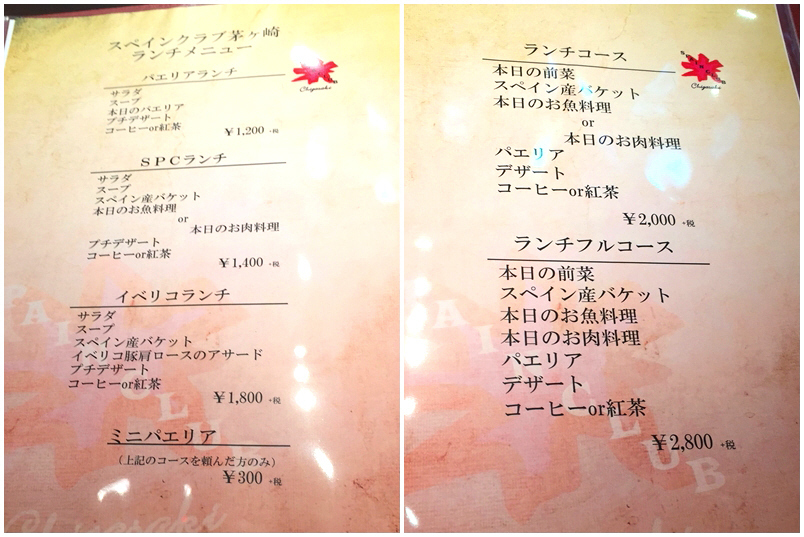 スペインクラブ茅ヶ崎
ランチメニュー
パエリアランチ
サラダ
スープ
本日のパエリア
プチデザート
コーヒーor紅茶
¥1,200 +税
SPCランチ
サラダ
スープ
スペイン産バケット
本日のお魚料理
or
本日のお肉料理
プチデザート
コーヒーor紅茶
¥1,400 +税
イベリコランチ
サラダ
スープ
スペイン産バケット
イベリコ豚肩ロースのアサード
プチデザート
コーヒーor紅茶
¥1,800 +税
ミニパエリア
(上記のコースを頼んだ方のみ)
¥300 +税
Chigasaki
ランチコース
Chigasaki
本日の前菜
スペイン産バケット
本日のお魚料理
or
本日のお肉料理
パエリア
デザート
コーヒーor紅茶
¥2,000 +税
ランチフルコース
本日の前菜
スペイン産バケット
本日のお魚料理
本日のお肉料理
パエリア
デザート
コーヒーor紅茶
¥2,800 +税